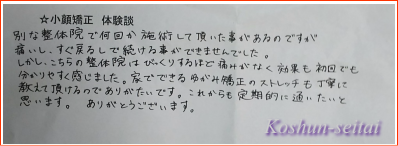 ☆小顔矯正 体験談
別な整体院で何回か施術して頂いた事があるのですが
痛いし、すぐ戻るしで続ける事ができませんでした。
しかし、こちらの整体院はびっくりするほど痛みがなく効果も初回でも
分かりやすく感じました。家でできるゆがみ矯正のストレッチも丁寧に
教えて頂けるのでありがたいです。これからも定期的に通いたいと
思います。 ありがとうございます。
Koshun-seitai